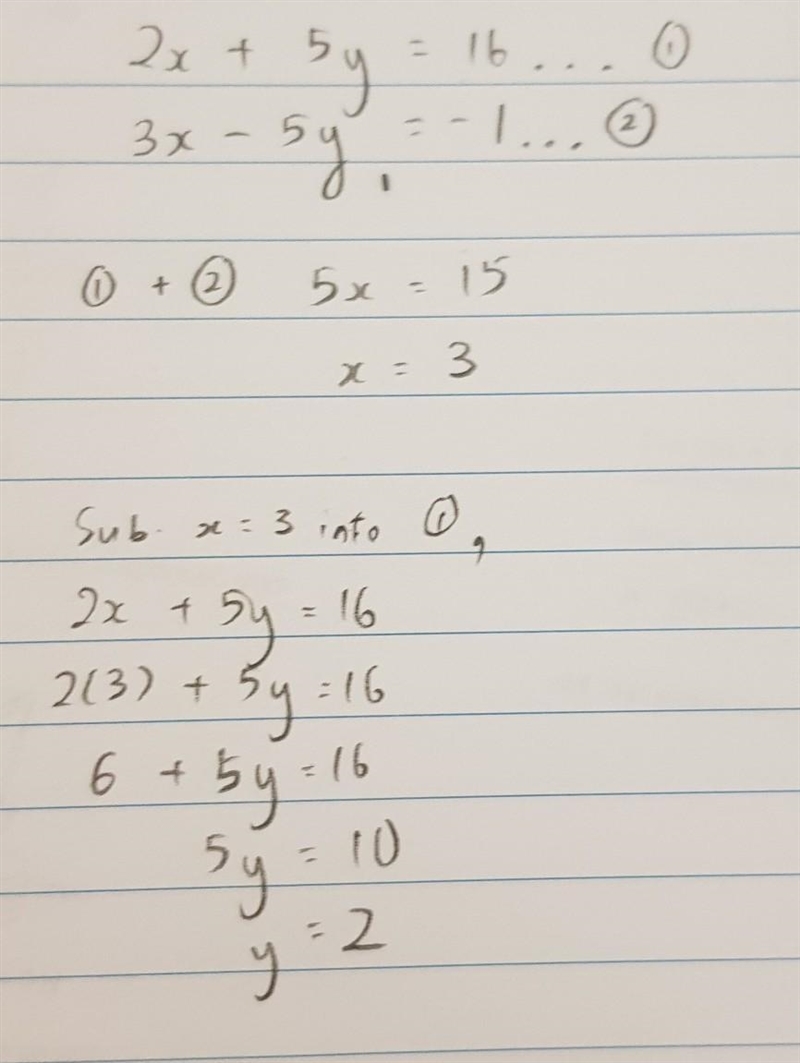 2x + 5y = 16 ... ①
3x - 5y = -1 ... ②
① + ② 5x = 15
x = 3
Sub. x = 3 into ①,
2x + 5y = 16
2(3) + 5y = 16
6 + 5y = 16
5y = 10
y = 2